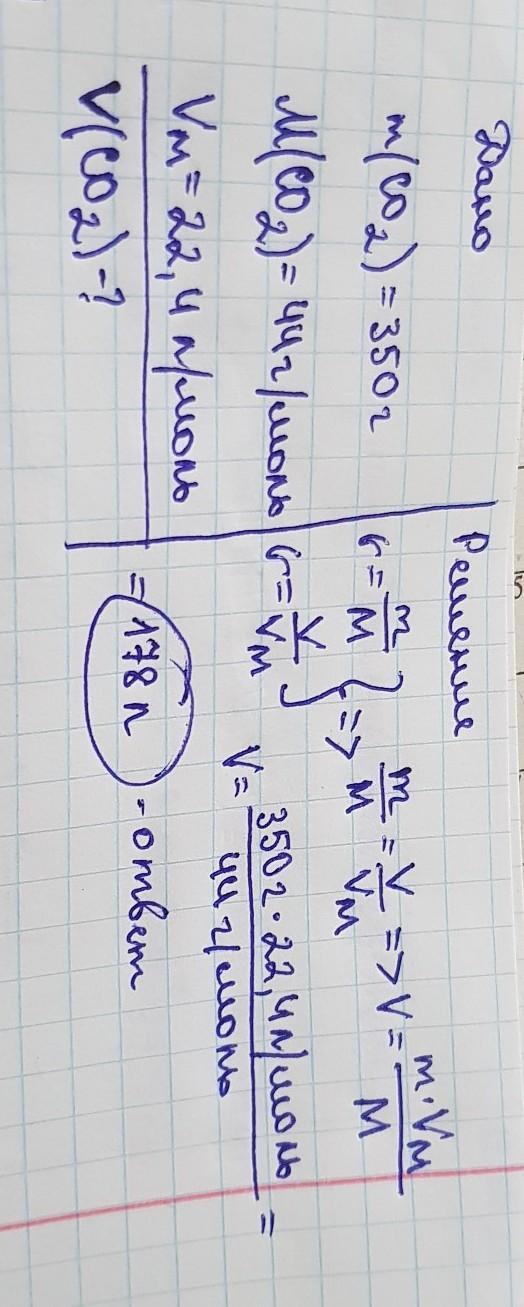 Дано
m(CO₂) = 350г
M(CO₂) = 44г/моль
Vм = 22,4 л/моль
V(CO₂) - ?
Решение
ν = m/M
ν = V/Vм } => m/M = V/Vм => V = m·Vм/M
V = 350г · 22,4 л/моль / 44 г/моль =
= 178 л - ответ
5